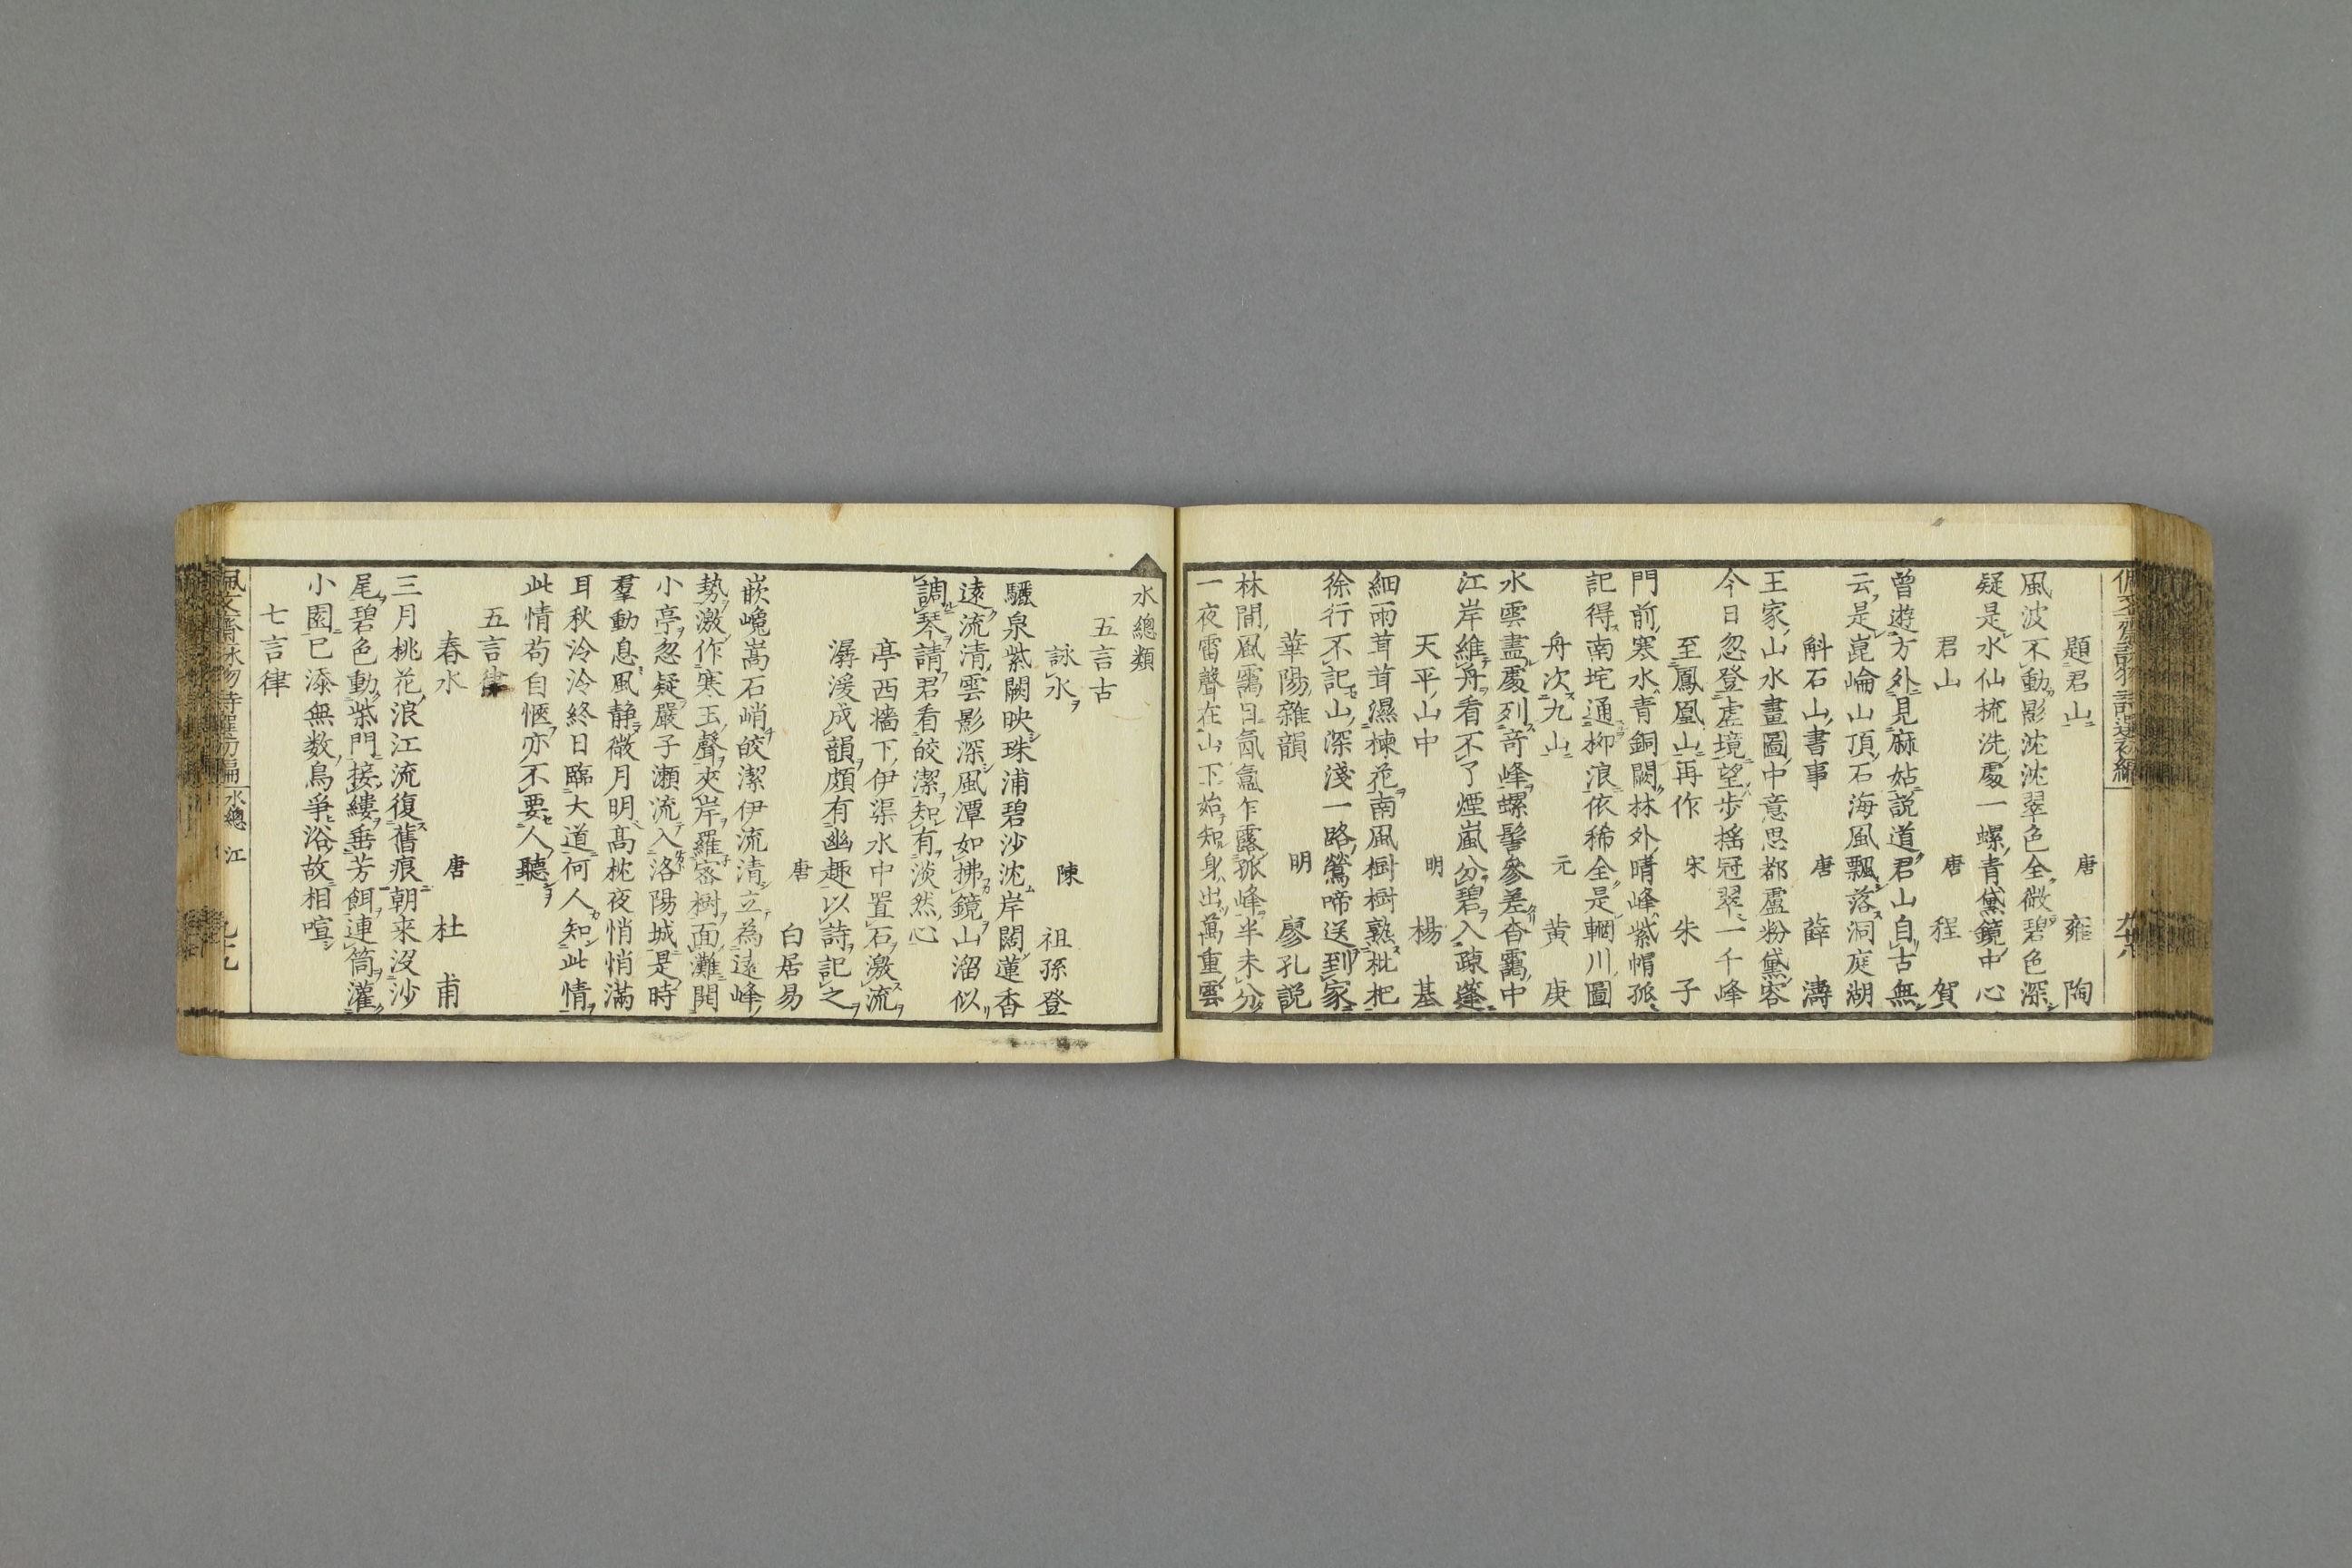 題君山 唐 雍陶
風波不動影沈沈翠色全微碧色深
疑是水仙梳洗處一螺青黛鏡中心
君山 唐 程賀
曾遊方外見麻姑説道君山自古無
云是崑崘山頂石海風飄落洞庭湖
斛石山書事 唐 薛濤
王家山水畫圖中意思都盧粉黛容
今日忽登虚境望歩揺冠翠一千峰
至鳳凰山再作 宋 朱子
門前寒水青銅闕林外晴峰紫帽孤
記得南垞通柳浪依稀全是輞川圖
舟次九山 元 黄庚
水雲盡處列奇峰螺髻參差杳靄中
江岸維舟看不了煙嵐分碧入疎蓬
天平山中 明 楊基
細雨茸茸濕楝花南風樹樹熟枇杷
徐行不記山深淺一路鶯啼送到家
華陽雜韻 明 廖孔説
林間風靄日氤氳乍露孤峰半未分
一夜雷聲在山下始知身出萬重雲
水總類
五言古
詠水 陳 祖孫登
驪泉紫闕映珠浦碧沙沈岸闊蓮香
遠流清雲影深風潭如拂鏡山溜似
調琴請君看皎潔知有淡然心
亭西墻下伊渠水中置石激流
潺湲成韻頗有幽趣以詩記之
唐 白居易
嵌巉嵩石峭皎潔伊流清立為遠峰
勢激作寒玉聲夾岸羅密樹面灘開
小亭忽疑嚴子瀬流入洛陽城是時
羣動息風静微月明髙枕夜悄悄滿
耳秋泠泠終日臨大道何人知此情
此情苟自愜亦不要人聽
五言律
春水 唐 杜甫
三月桃花浪江流復舊痕朝来沒沙
尾碧色動柴門接縷垂芳餌連筒灌
小園已添無数鳥爭浴故相喧
七言律
佩文齋詠物詩選初編 水總 江